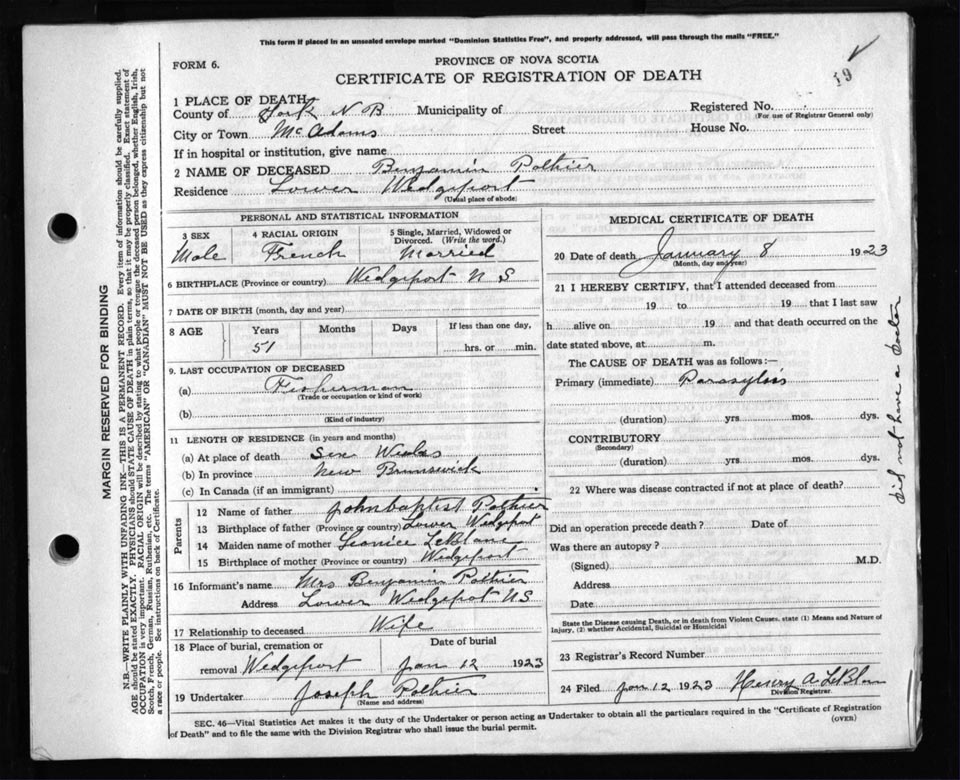 This form if placed in an unsealed envelope marked "Dominion Statistics Free", and properly addressed, will pass through the mails "FREE."
FORM 6.
PROVINCE OF NOVA SCOTIA
CERTIFICATE OF REGISTRATION OF DEATH
19
1 PLACE OF DEATH
County of York N B Municipality of Registered No.
(For use of Registrar General only)
City or Town McAdams Street House No.
If in hospital or institution, give name
2 NAME OF DECEASED Benjamin Pothier
Residence Lower Wedgeport
(Usual place of abode)
PERSONAL AND STATISTICAL INFORMATION
3 SEX 4 RACIAL ORIGIN 5 Single, Married, Widowed or Divorced. (Write the word.)
Male French Married
6 BIRTHPLACE (Province or country) Wedgeport N S
7 DATE OF BIRTH (month, day and year)
8 AGE Years Months Days If less than one day,
51 hrs. or min.
9. LAST OCCUPATION OF DECEASED
(a) Fisherman
(Trade or occupation or kind of work)
(b)
(Kind of industry)
11 LENGTH OF RESIDENCE (in years and months)
(a) At place of death Six Weeks
(b) In province New Brunswick
(c) In Canada (if an immigrant)
Parents
12 Name of father John Baptist Pothier
13 Birthplace of father (Province or country) Lower Wedgeport
14 Maiden name of mother LeBlanc
15 Birthplace of mother (Province or country) Wedgeport
16 Informant's name Mrs Benjamin Pothier
Address Lower Wedgeport N S
17 Relationship to deceased Wife
18 Place of burial, cremation or Date of burial
removal Wedgeport Jan 12 1923
19 Undertaker Joseph Pothier
(Name and address)
MEDICAL CERTIFICATE OF DEATH
20 Date of death January 8 1923
(Month, day and year)
21 I HEREBY CERTIFY, that I attended deceased from
19 to 19 that I last saw
h alive on 19 and that death occurred on the
date stated above, at m.
The CAUSE OF DEATH was as follows:—
Primary (immediate)
(duration) yrs. mos. dys.
CONTRIBUTORY
(Secondary)
(duration) yrs. mos. dys.
22 Where was disease contracted if not at place of death?
Did an operation precede death? Date of
Was there an autopsy?
(Signed) M.D.
Address
Date
State the Disease causing Death, or in death from Violent Causes, state (1) Means and Nature of Injury, (2) whether Accidental, Suicidal or Homicidal
23 Registrar's Record Number
24 Filed Jan 12 1923 Henry A LeBlanc
Division Registrar.
SEC. 46—Vital Statistics Act makes it the duty of the Undertaker or person acting as Undertaker to obtain all the particulars required in the "Certificate of Registration
of Death" and to file the same with the Division Registrar who shall issue the burial permit.
(OVER)
did not have a doctor
MARGIN RESERVED FOR BINDING
N.B.—WRITE PLAINLY WITH UNFADING INK—THIS IS A PERMANENT RECORD. Every item of information should be carefully supplied.
AGE should be stated EXACTLY. PHYSICIANS should STATE CAUSE OF DEATH in plain terms, so that it may be properly classified. Exact statement of
OCCUPATION is very important. RACIAL ORIGIN will be described by stating to what people or tongue the deceased person belonged, whether English, Irish,
Scotch, French, German, Russian, Ruthenian, etc. The terms "AMERICAN" OR "CANADIAN" MUST NOT BE USED as they express citizenship but not
a race or people. See instructions on back of Certificate.